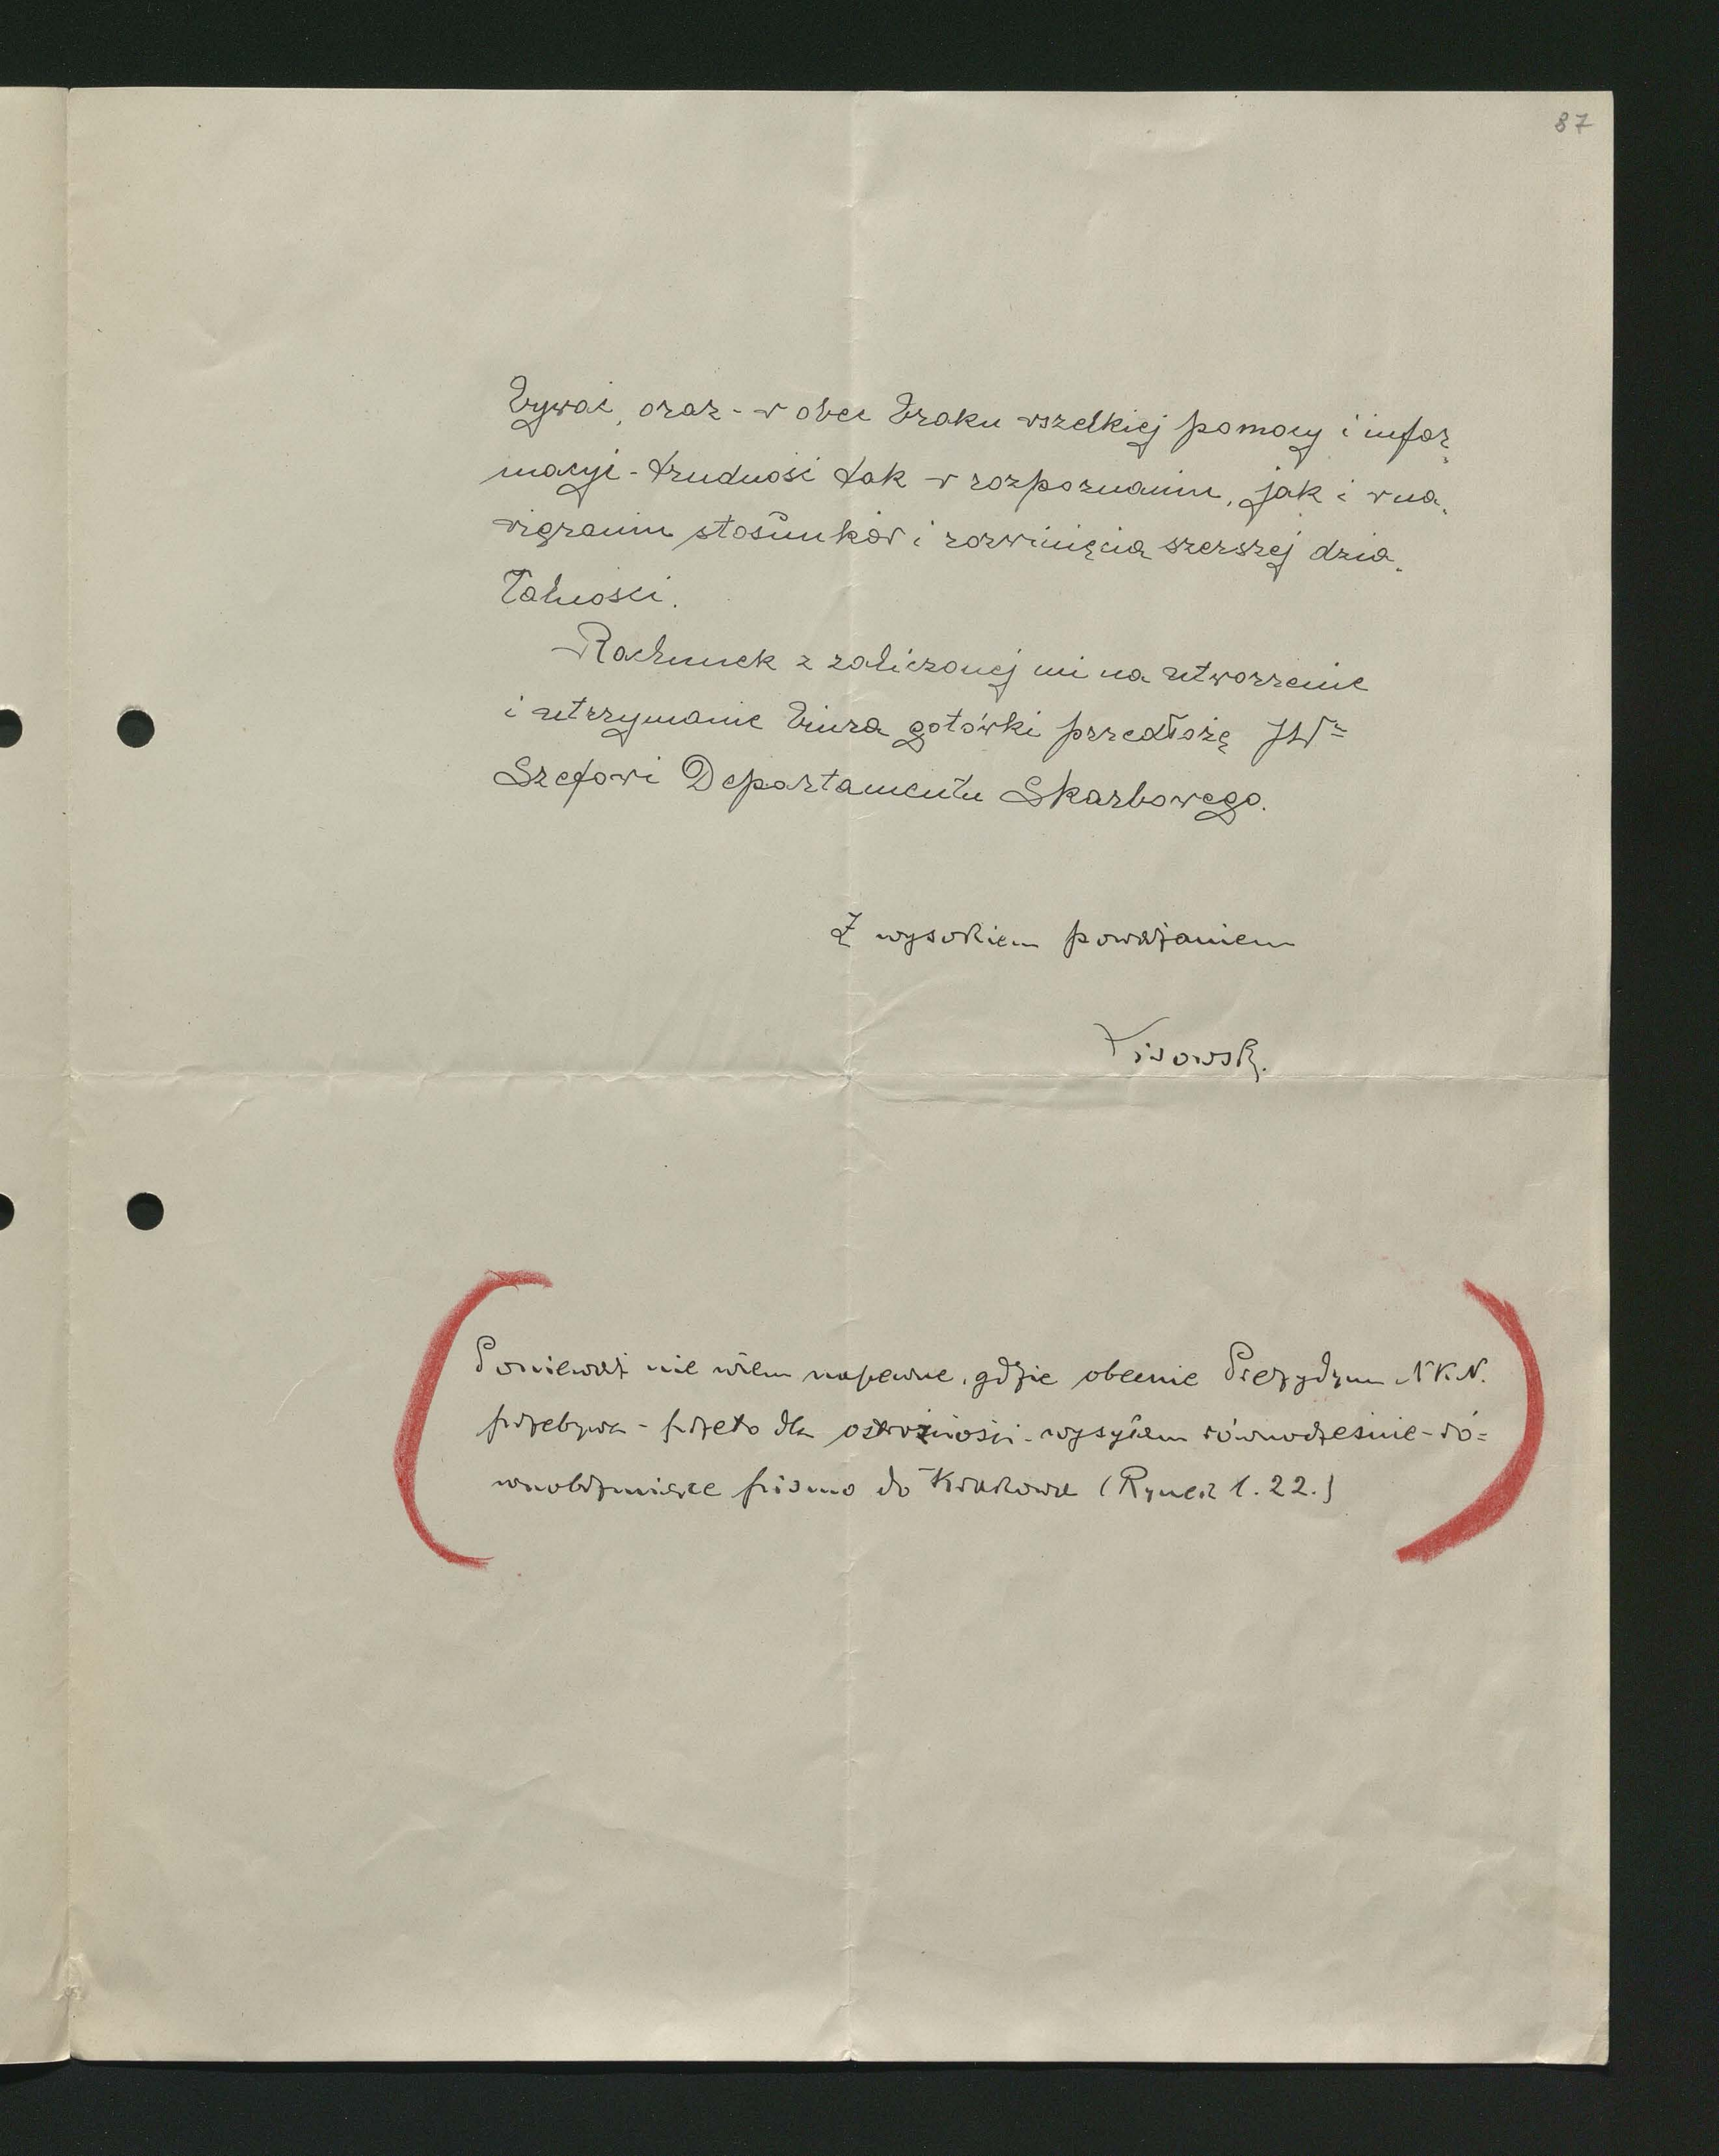 87
bywać, oraz - w obec braku wszelkiej pomocy i infor„
macyi - trudności tak w rozpoznaniu, jak i w na„
wiązaniu stosunków i rozwinięcia szerszej dzia„
łalności.
Rachunek z zaliczonej mi na utworzenie
i utrzymanie biura gotówki przedłożę JW=
Szefowi Departamentu Skarbowego.
Z wysokiem poważaniem
Lisowski.
Ponieważ nie wiem napewne, gdzie obecnie Prezydyum N.K.N.
przebywa - przeto dla ostrożności - wysyłam równocześnie - ró=
wnobrzmiące pismo do Krakowa (Rynek l. 22.)